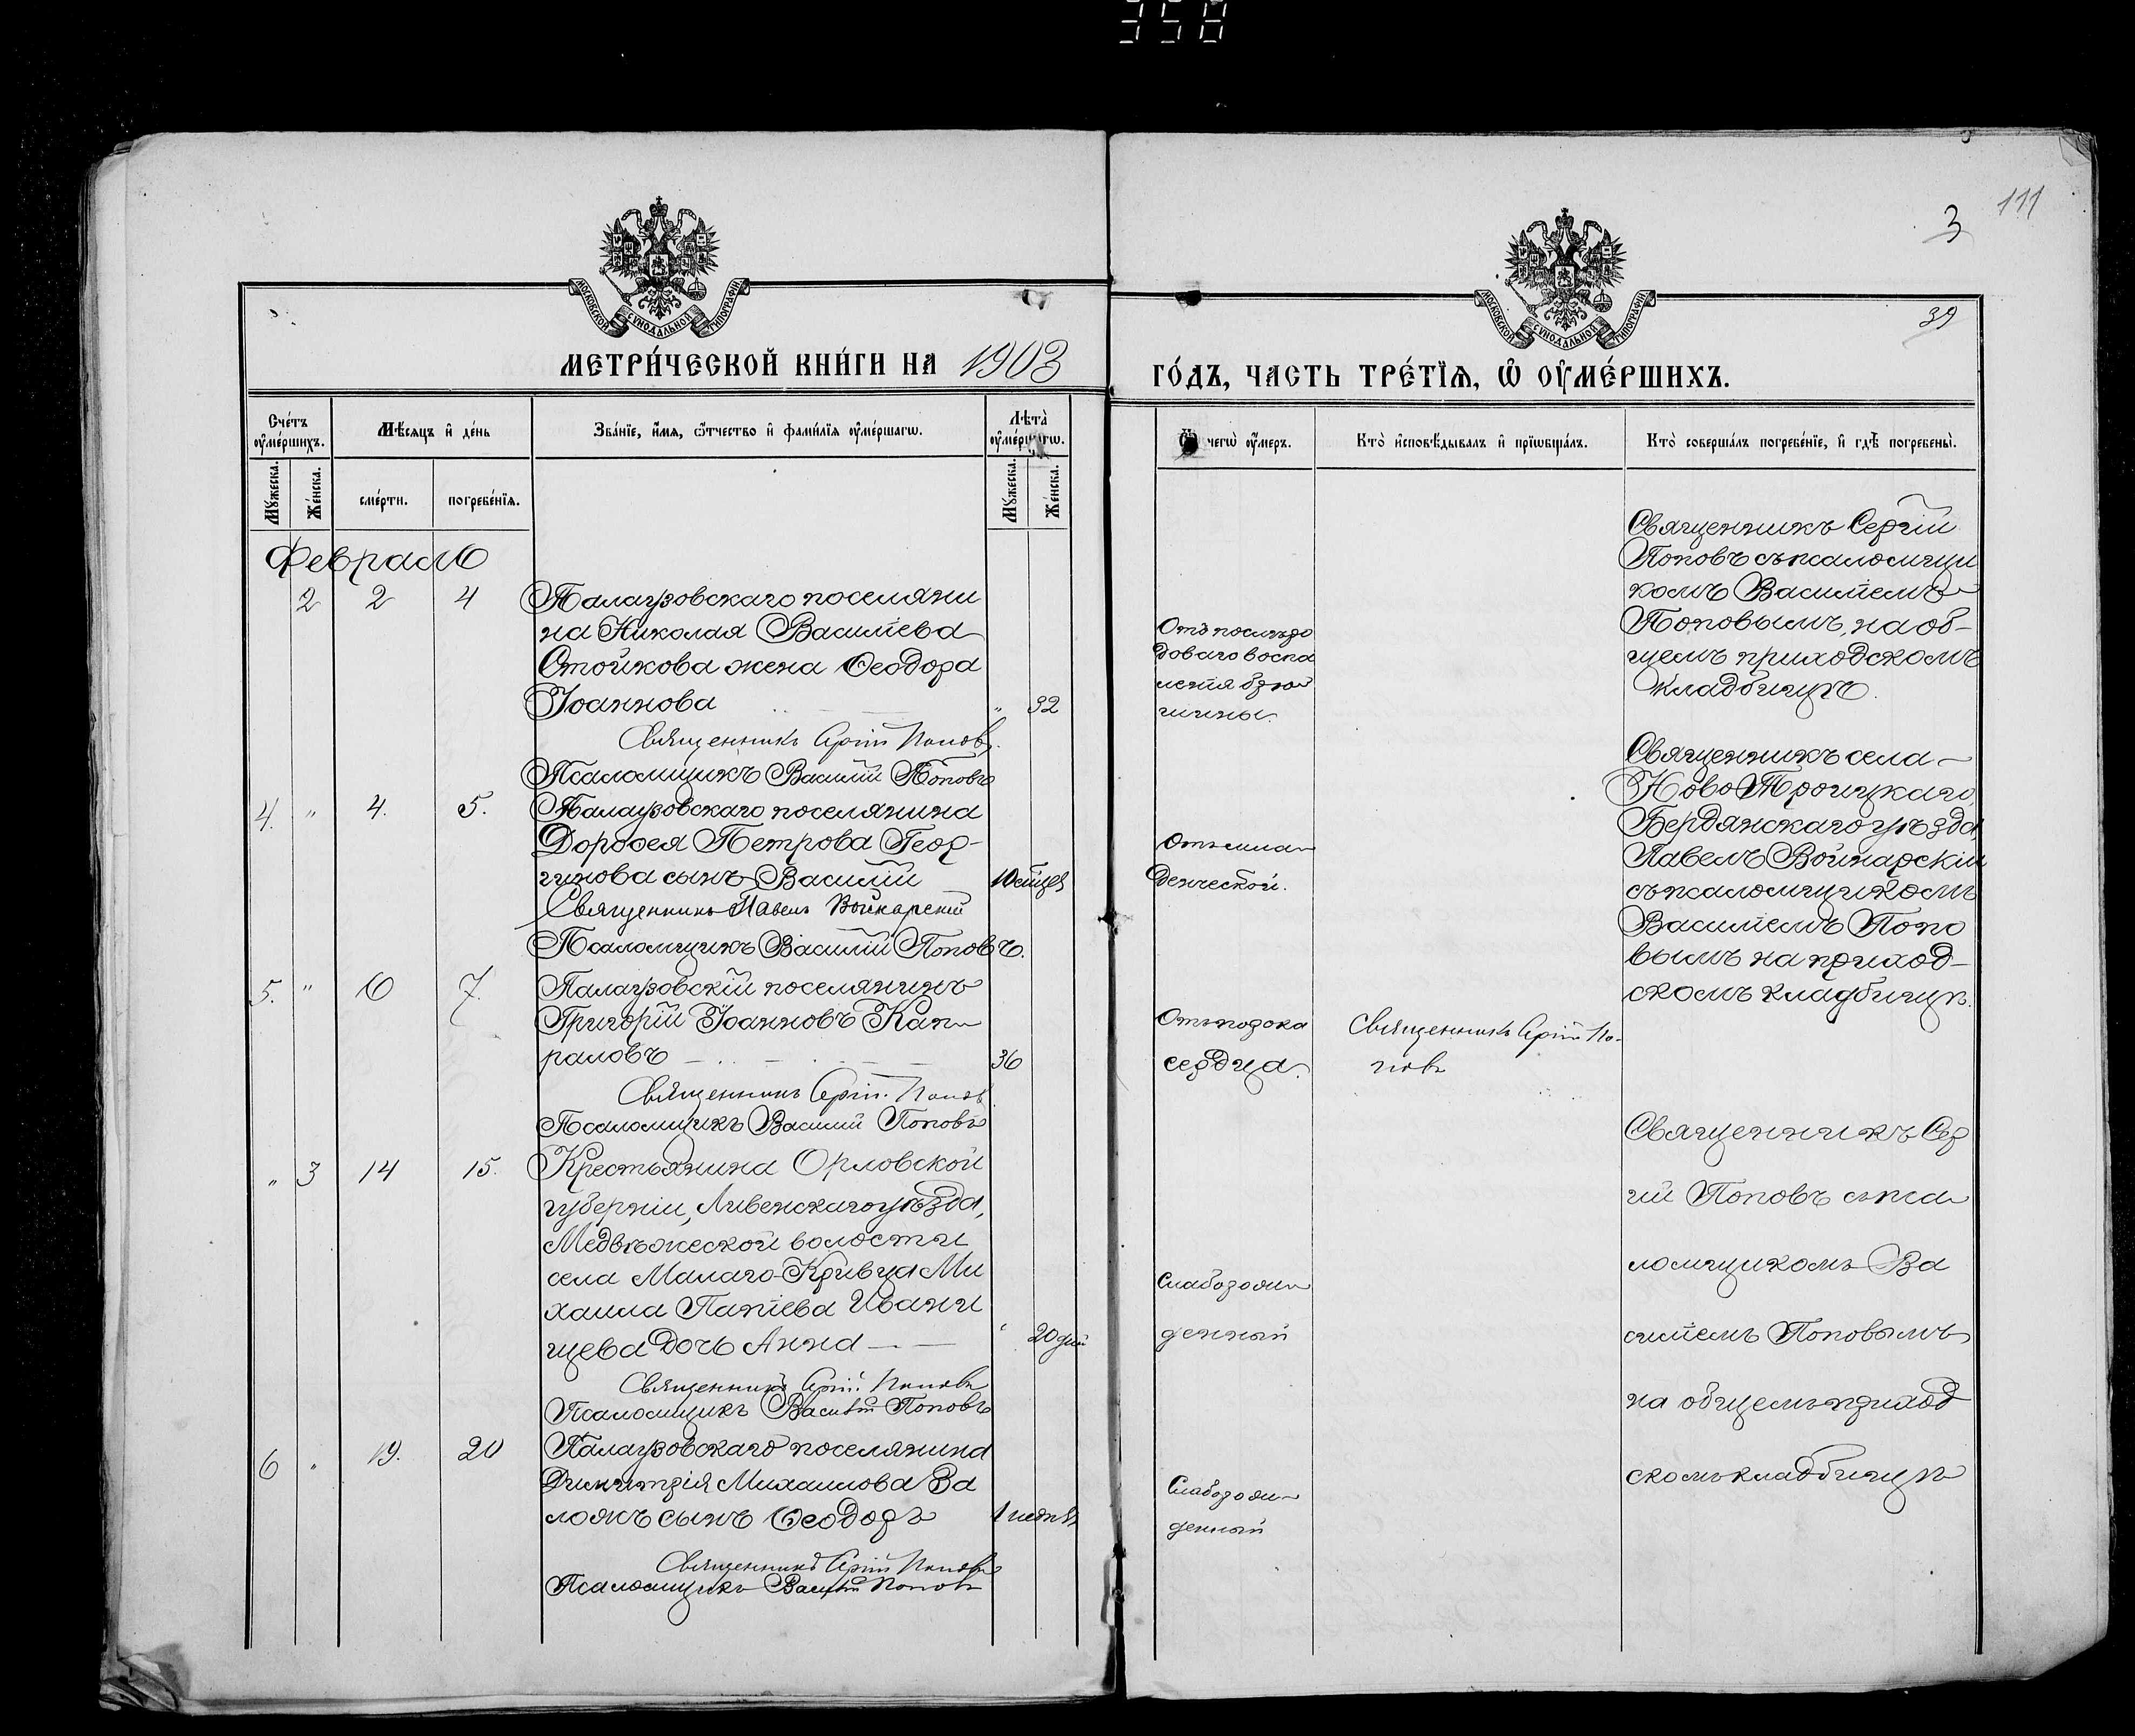 358
111
3
39
МОСКОВСКОЙ СѴНОДАЛЬНОЙ ТИПОГРАФІИ
МОСКОВСКОЙ СѴНОДАЛЬНОЙ ТИПОГРАФІИ
МЕТРИ́ЧЕСКОЙ КНИ́ГИ НА 1903
ГО́ДЪ, ЧАСТЬ ТРЕ́ТЇѦ, Ѡ҆ ОУ҆МЕ́РШИХЪ.
Сче́тъ оу҆ме́ршихъ.
Мѣ́сяцъ и҆ де́нь
Зва́нїе, и҆́мя, ѻ҆́тчество и҆ фами́лїя оу҆ме́ршагѡ.
Лѣта̀ оу҆ме́ршагѡ.
Мꙋ́жеска.
Же́нска.
сме́рти.
погребе́нїя.
Мꙋ́жеска.
Же́нска.
чегѡ̀ оу҆́меръ.
Кто̀ и҆сповѣ́дывалъ и҆ прїѡбща́лъ.
Кто̀ соверша́лъ погребе́нїе, и҆ гдѣ̀ погребены̀.
Февраль
2 2 4 Палаузовскаго поселяни
на Николая Василіева
Стойкова жена Ѳеодора
Іоаннова " 32
Священникъ Сергій Поповъ.
Псаломщикъ Василій Поповъ
Отъ послѣро
доваго воспа
ленія брю
шины.
Священникъ Сергій
Поповъ съ псаломщи
комъ Василіемъ
Поповымъ, на об-
щемъ приходскомъ
кладбищѣ.
4. " 4. 5. Палаузовскаго поселянина
Дороѳея Петрова Геор-
гинова сынъ Василій 10 мѣсяц
Священникъ Павелъ Войнарскій
Псаломщикъ Василій Поповъ.
Отъ мла
денческой.
Священникъ села
Ново Троицкаго,
Бердянскаго уѣзда,
Павелъ Войнарскій
съ псаломщикомъ
Василіемъ Попо
вымъ на приход-
скомъ кладбищѣ.
5. " 6 7. Палаузовскій поселянинъ
Григорій Іоанновъ Кап
раловъ 36
Священникъ Сергій Поповъ.
Псаломщикъ Василій Поповъ
Отъ порока
сердца.
Священникъ Сергій По-
повъ
" 3 14 15. Крестьянина Орловской
губерніи, Ливенскаго уѣзда,
Медвѣжеской волости
села Малаго-Кривца Ми
хаила Иванни
щева дочь Анна " 20 дній
Священникъ Сергій Поповъ
Псаломщикъ Василій Поповъ
Слаборож
денный
Священникъ Сер
гій Поповъ съ пса
ломщикомъ Ва
силіемъ Поповымъ
на общемъ приход
скомъ кладбищѣ
6 " 19. 20 Палаузовскаго поселянина
Димитрія Михаилова За
ложъ сынъ Ѳеодоръ
Священникъ Сергій Поповъ
Псаломщикъ Василій Поповъ
Слаборож
денный